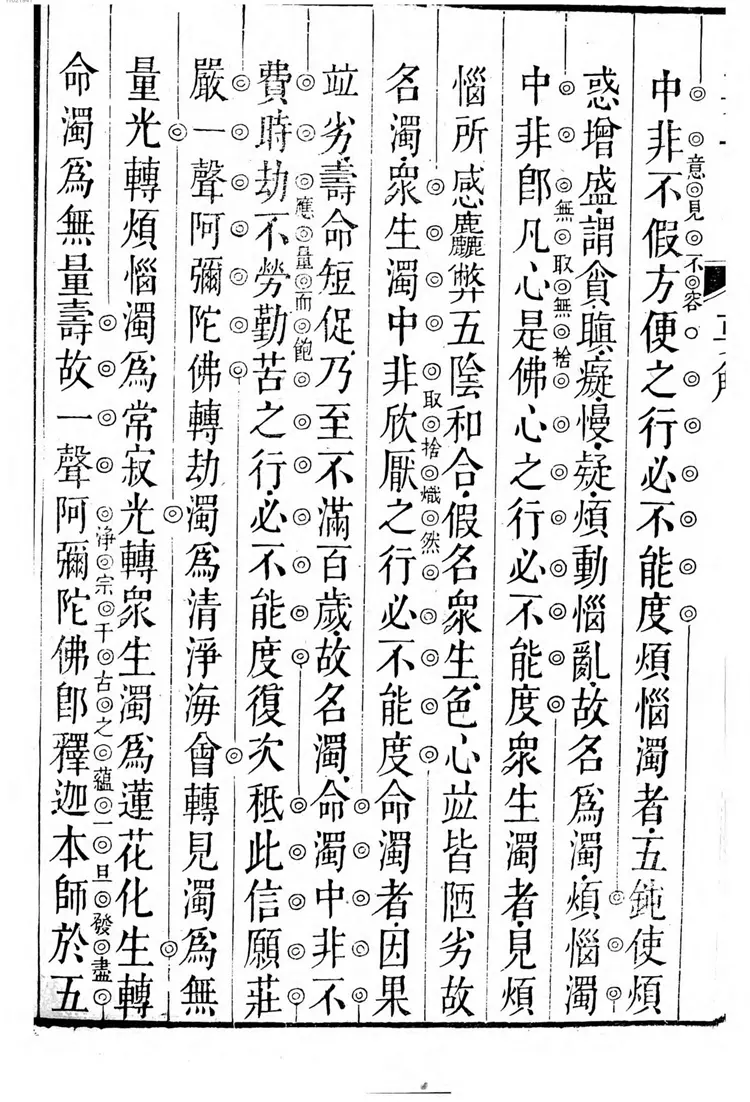 中非不假方便之行必不能度煩惱濁者五鈍使煩
意見不容
惑增盛謂貪瞋癡慢疑煩動惱亂故名爲濁煩惱濁
中非卽凡心是佛心之行必不能度眾生濁者見煩
無取無捨
惱所感麤弊五陰和合假名眾生色心竝皆陋劣故
名濁眾生濁中非欣厭之行必不能度命濁者因果
取捨熾然
竝劣壽命短促乃至不滿百歲故名濁命濁中非不
費時劫不勞勤苦之行必不能度復次秪此信願莊
應量而飽
嚴一聲阿彌陀佛轉劫濁爲清淨海會轉見濁爲無
量光轉煩惱濁爲常寂光轉眾生濁爲蓮花化生轉
命濁爲無量壽故一聲阿彌陀佛卽釋迦本師於五
淨宗千古之蘊一旦發盡